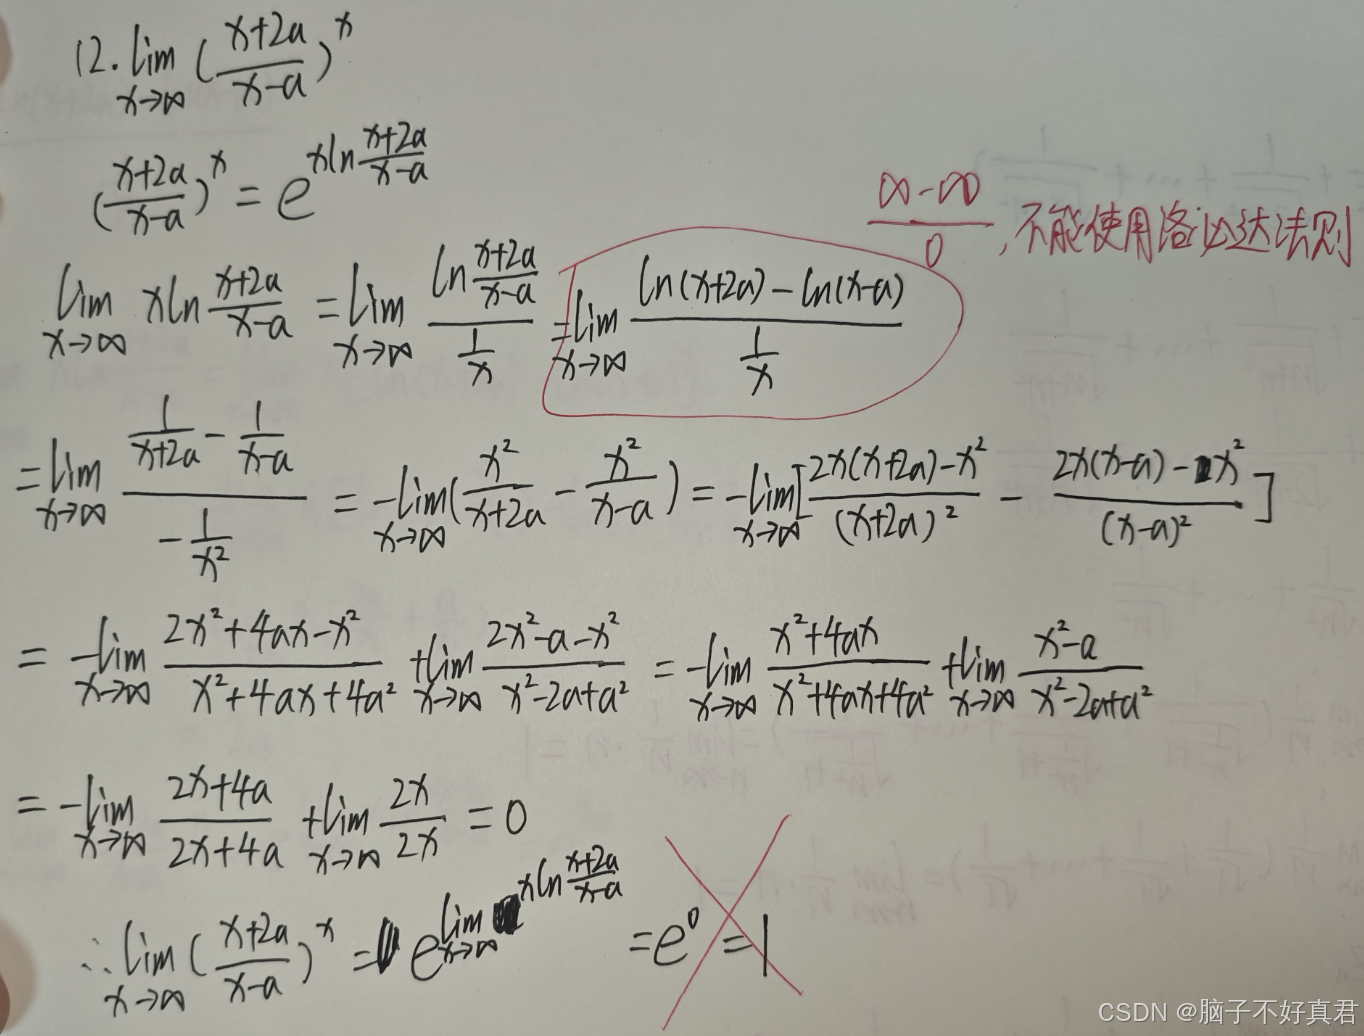 12. lim_{x→∞} (\frac{x+2a}{x-a})^x
(\frac{x+2a}{x-a})^x = e^{xln\frac{x+2a}{x-a}}
\frac{∞-∞}{0}, 不能使用洛必达法则
lim_{x→∞} xln\frac{x+2a}{x-a} = lim_{x→∞} \frac{ln\frac{x+2a}{x-a}}{\frac{1}{x}} = lim_{x→∞} \frac{ln(x+2a)-ln(x-a)}{\frac{1}{x}}
= lim_{x→∞} \frac{\frac{1}{x+2a}-\frac{1}{x-a}}{-\frac{1}{x^2}} = -lim_{x→∞}(\frac{x^2}{x+2a}-\frac{x^2}{x-a}) = -lim_{x→∞}[\frac{2x(x+2a)-x^2}{(x+2a)^2} - \frac{2x(x-a)-x^2}{(x-a)^2}]
= -lim_{x→∞} \frac{2x^2+4ax-x^2}{x^2+4ax+4a^2} + lim_{x→∞} \frac{2x^2-a-x^2}{x^2-2a+a^2} = -lim_{x→∞} \frac{x^2+4ax}{x^2+4ax+4a^2} + lim_{x→∞} \frac{x^2-a}{x^2-2a+a^2}
= -lim_{x→∞} \frac{2x+4a}{2x+4a} + lim_{x→∞} \frac{2x}{2x} = 0
∴ lim_{x→∞} (\frac{x+2a}{x-a})^x = e^{lim_{x→∞} xln\frac{x+2a}{x-a}} = e^0 = 1
CSDN @脑子不好真君